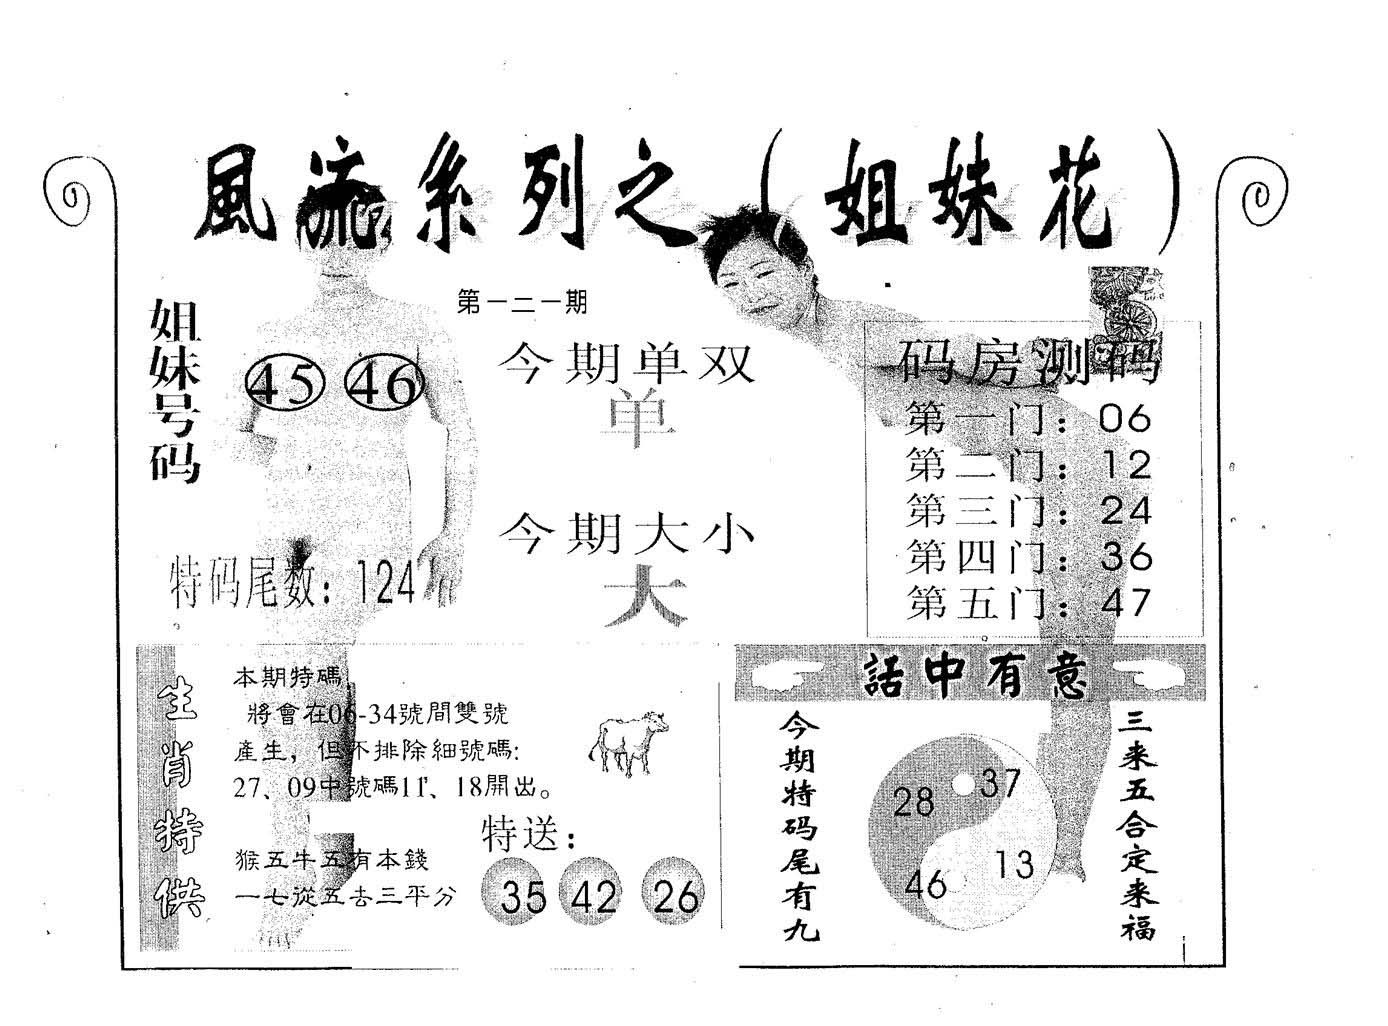 風流系列之（姐妹花）
第一二一期
姐妹号码
45 46
今期单双
单
今期大小
大
特码尾数：124
码房测码
第一门：06
第二门：12
第三门：24
第四门：36
第五门：47
生肖持供
本期特碼
將會在06-34號間雙號
產生，但不排除細號碼:
27、09中號碼11'、18開出。
猴五牛五有本錢
一七從五去三平分
特送：
35 42 26
話中有意
今期特码尾有九
28 37
46 13
三来五合定来福